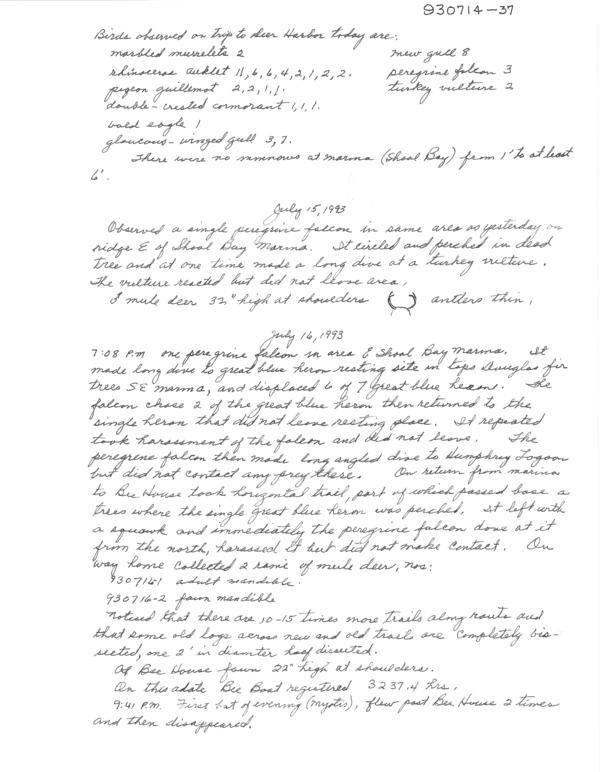 930714-37
Birds observed on trip to Deer Harbor today are:
marbled murrelets 2 mew gull 8
rhinoceros auklet 11, 6, 6, 4, 2, 1, 2, 2. peregrine falcon 3
pigeon guillemot 2, 2, 1, 1. turkey vulture 2
double-crested cormorant 1, 1, 1.
bald eagle 1
glaucous-winged gull 3, 7.
There were no minnows at marina (Shoal Bay) from 1' to at least
6'.
July 15, 1993
Observed a single peregrine falcon in same area as yesterday on
ridge E of Shoal Bay Marina. It circled and perched in dead
tree and at one time made a long dive at a turkey vulture.
The vulture reacted but did not leave area.
1 mule deer 32" high at shoulders antlers thin.
July 16, 1993
7:08 P.M one peregrine falcon in area E Shoal Bay Marina. It
made long dive to great blue heron resting site in tops Douglas fir
trees SE marina, and displaced 6 of 7 great blue heron. The
falcon chase 2 of the great blue heron then returned to the
single heron that did not leave resting place. It repeated
took harassment of the falcon and did not leave. The
peregrene falcon then made long angled dive to Humphrey Lagoon
but did not contact any prey there. On return from marina
to Bee House took horizontal trail, part of which passed base a
trees where the single great blue heron was perched. It left with
a squawk and immediately the peregrine falcon dove at it
from the north, harassed it but did not make contact. On
way home collected 2 rami of mule deer, nos:
930716-1 adult mandible.
930716-2 fawn mandible
Noticed that there are 10-15 times more trails along route and
that some old logs across new and old trails are completely bis-
sected, one 2' in diamter half dissected.
At Bee House fawn 22" high at shoulders.
On this adate Bee Boat registered 3237.4 hrs.
9:41 P.M. First bat of evening (myotis), flew past Bee House 2 times
and then disappeared.